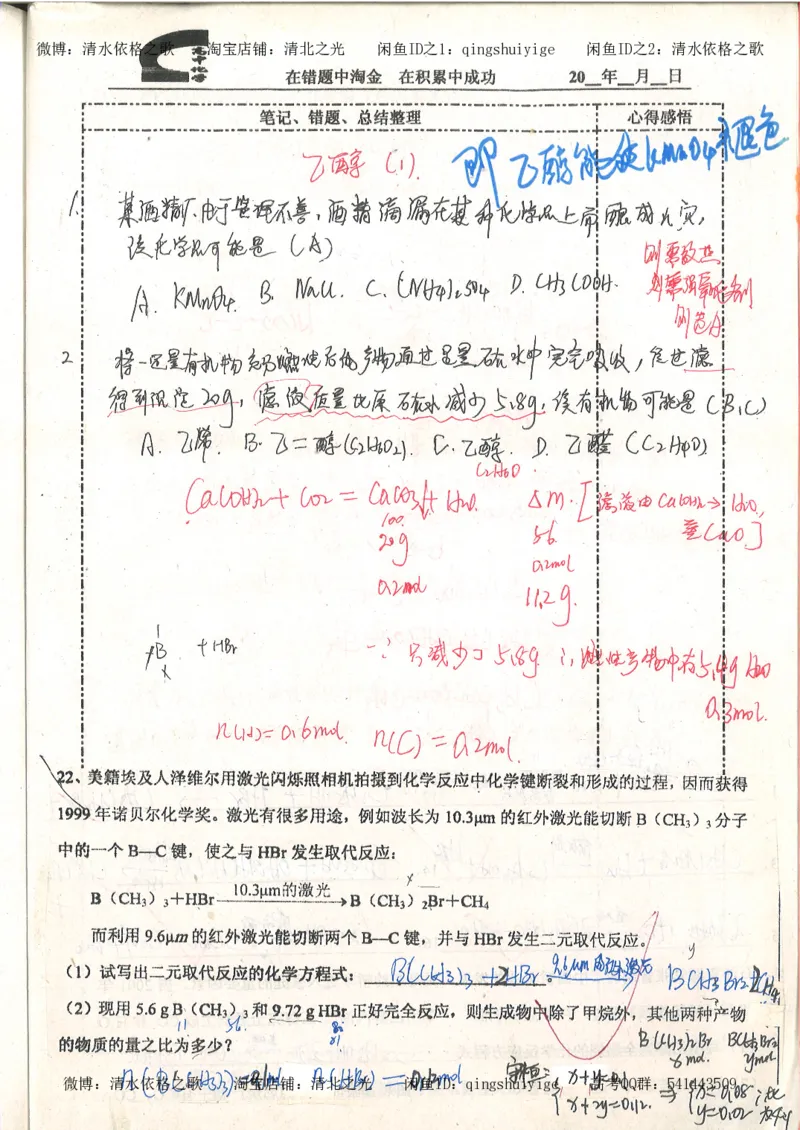 微博：清水依格之歌 淘宝店铺：清北之光 闲鱼ID之1：qingshuiyige 闲鱼ID之2：清水依格之歌
在错题中淘金 在积累中成功 20__年__月__日
笔记、错题、总结整理 心得感悟
乙醇（1）. 即乙醇能使KMnO4褪色
1. 某酒精厂由于管理不善，酒精滴漏在某种化学品上而酿成火灾，
该化学品可能是（A）
A. KMnO4. B. NaCl. C. (NH4)2SO4 D. CH3COOH.
2 将一定量有机物充分燃烧后的产物通过足量石灰水中完全吸收，经过滤
得到沉淀20g，滤液质量比原石灰水减少5.8g，该有机物可能是（B,C）
A. 乙烯. B. 乙二醇(C2H6O2). C. 乙醇. D. 乙醛（C2H4O）
C2H6O.
Ca(OH)2+CO2=CaCO3↓+H2O. Δm. [滤液由Ca(OH)2→H2O,
100 56
20g 0.2mol
0.2mol 11.2g.
B +HBr
∵只减少了5.8g ∴燃烧产物中有5.4g H2O
0.3mol.
n(H)=0.6mol. n(C)=0.2mol.
22、美籍埃及人泽维尔用激光闪烁照相机拍摄到化学反应中化学键断裂和形成的过程，因而获得
1999年诺贝尔化学奖。激光有很多用途，例如波长为10.3μm的红外激光能切断B（CH3）3分子
中的一个B—C键，使之与HBr发生取代反应：
B（CH3）3＋HBr 10.3μm的激光→B（CH3）2Br＋CH4
而利用9.6μm的红外激光能切断两个B—C键，并与HBr发生二元取代反应。
（1）试写出二元取代反应的化学方程式： B(CH3)3+2HBr 9.6μm的红外激光→ BCH3Br2+2CH4
（2）现用5.6 g B（CH3）3和9.72 g HBr正好完全反应，则生成物中除了甲烷外，其他两种产物
11 56 80 81
B(CH3)2Br BCH3Br2
的物质的量之比为多少？ xmol. ymol
微博：清水依格之歌 淘宝店铺：清北之光 闲鱼ID：qingshuiyige 高考QQ群：541443509
n(B(CH3)3)=0.1mol n(HBr)=0.12mol x+y=0.1 x=0.08
x+2y=0.12. ⇒ y=0.02